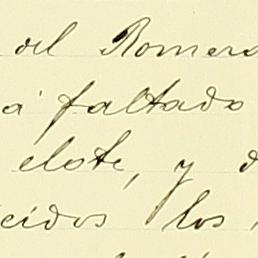 del Romero
á faltado
elote, y d
cidos los